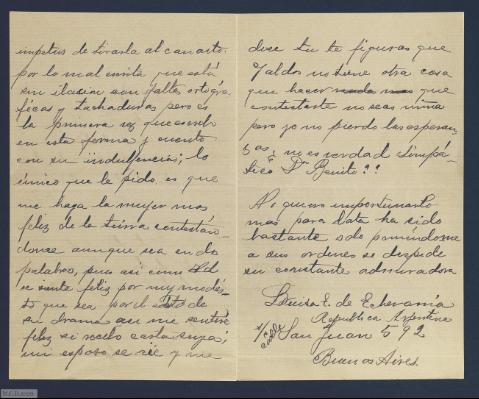 impetus de tirarla al canasto
por lo mal escrita que está
sin ilacion con faltas ortográ
ficas y tachaduras pero es
la primera vez que escribo
en esta forma y cuento
con su indulgencia; lo
único que le pido es que
me haga la mujer mas
feliz de la tierra contestán-
dome aunque sea en dos
palabras, pues asi como Ud
se siente feliz por muy modés-
to que sea por el éxito de
su drama asi me sentiré
feliz si recibo carta suya;
mi esposo se rie y me
dice tu te figuras que
Galdos no tiene otra cosa
que hacer que
contestarte no seas niña
pero yo no pierdo las esperan
zas, no es verdad simpá-
tico Dn Benito??
No quiero importunarlo
mas para lata ha sido
bastante solo poniéndome
a sus ordenes se despide
su constante admiradora
Luisa E. de Echevarria
Republica Argentina
S/c calle San Juan 592
Buenos Aires